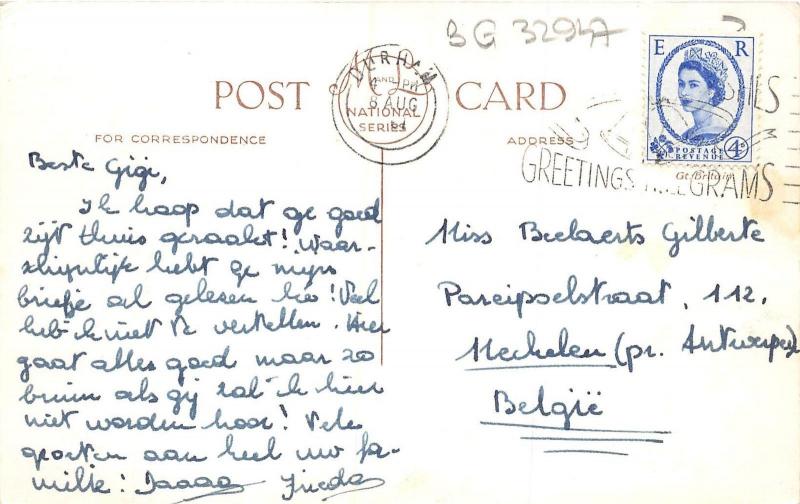 BG 3294A
POST CARD
FOR CORRESPONDENCE
NATIONAL
SERIES
ADDRESS
DURHAM
8 AUG
E R
POSTAGE
REVENUE
4D
Gt. Britain
GREETINGS TELEGRAMS
Beste Gigi,
Ik hoop dat ge goed
zijt thuis geraakt! Waar-
schijnlijk hebt ge mijn
briefje al gelezen hé! Veel
heb ik niet te vertellen. Hier
gaat alles goed maar zo
bruin als gij zal ik hier
niet worden hoor! Vele
groeten aan heel uw fa-
milie! Daaag Frieda
Miss Beelaerts Gilberte
Pareipoelstraat, 112.
Mechelen (pr. Antwerpen)
België